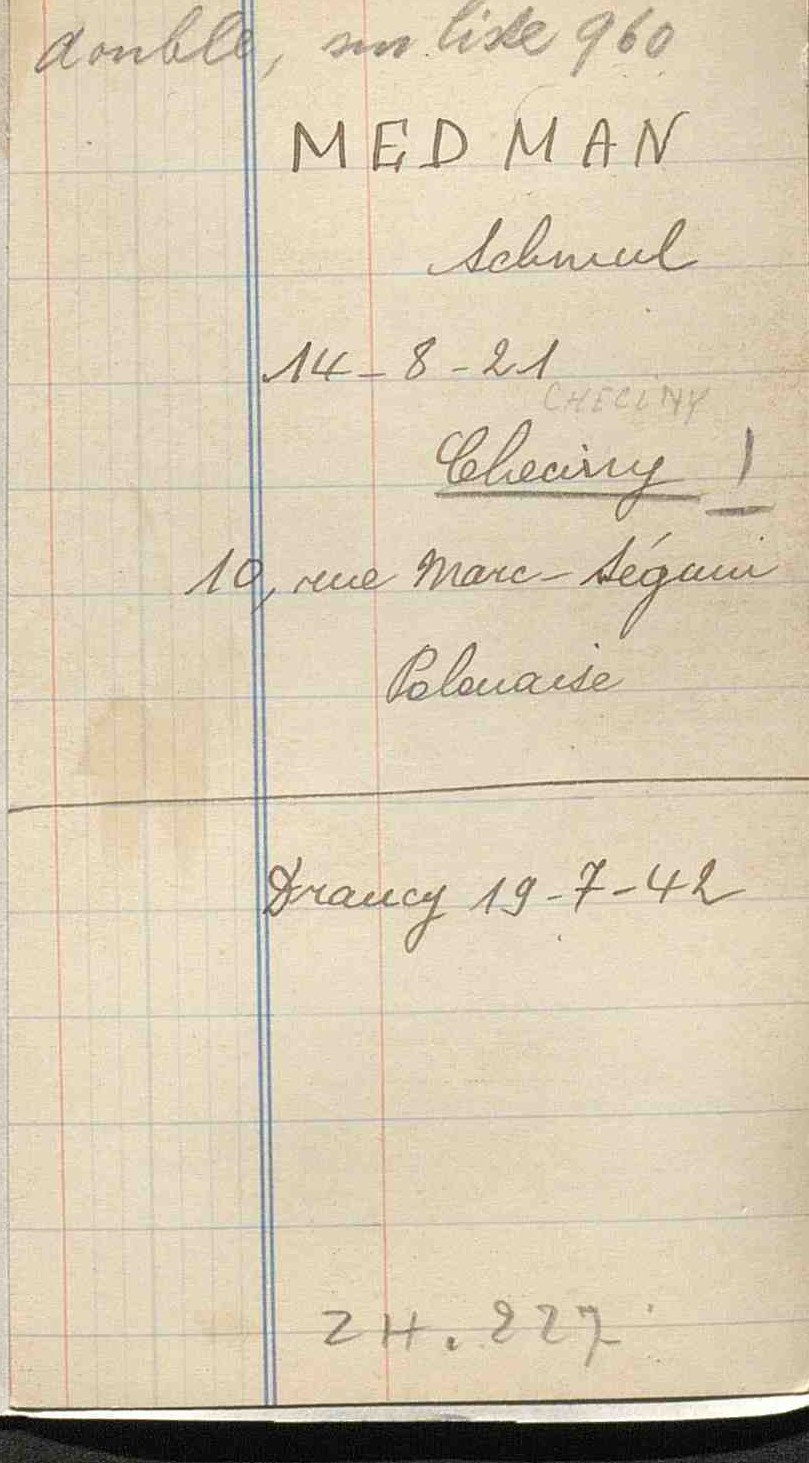 double, sur liste 960
MEDMAN
Schmul
14-8-21
CHECINY
Checiny !
10, rue Marc-Séguin
Polonaise
Drancy 19-7-42
24.227